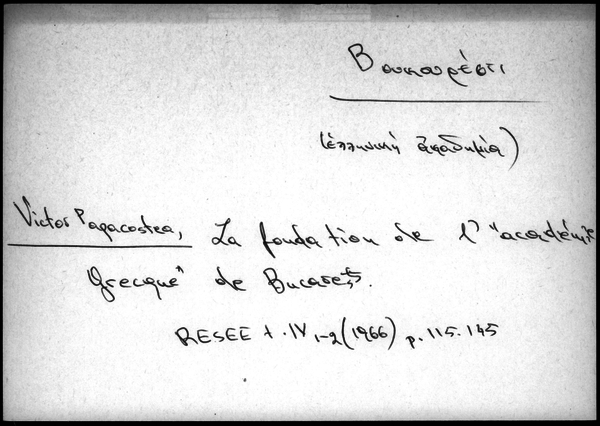 Βουκουρέστι
(ἑλληνική ἀκαδημία)
Victor Papacostea, La fondation de l'"académie
Grecque" de Bucarest.
RESEE t. IV 1-2 (1966) p. 115-145